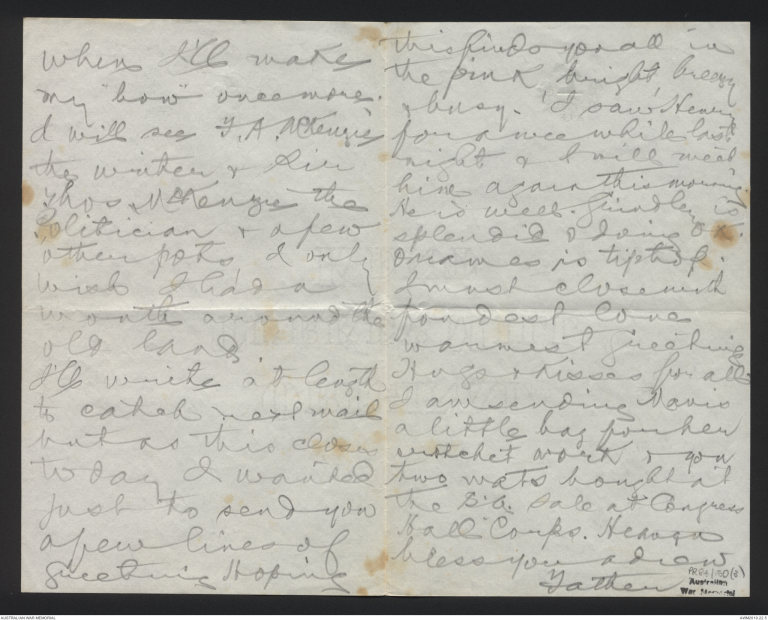 when I'll make
my "bow" once more.
I will see F.A. McKenzie
the writer & Sir
Thos McKenzie the
Politician & a few
other pots, I only
wish I had a
month around the
old land
I'll write at length
to catch next mail
but as this closes
today I wanted
just to send you
a few lines of
greeting Hoping
this finds you all in
the pink bright, breezy
& busy. I saw Henry
for a wee while last
night & I will meet
him again this morning.
He is well. Lindley is
splendid & doing OK.
is tiptop.
I must close with
fondest love
warmest greeting
Hugs & kisses for all
I am sending Mavis
a little bag for her
crotchet work & you
two mats bought at
the S.D. Sale at Congress
Hall Corps. Heaven
bless you adieu
Father
PR84/150(3)
Australian
War Memorial
AUSTRALIAN WAR MEMORIAL